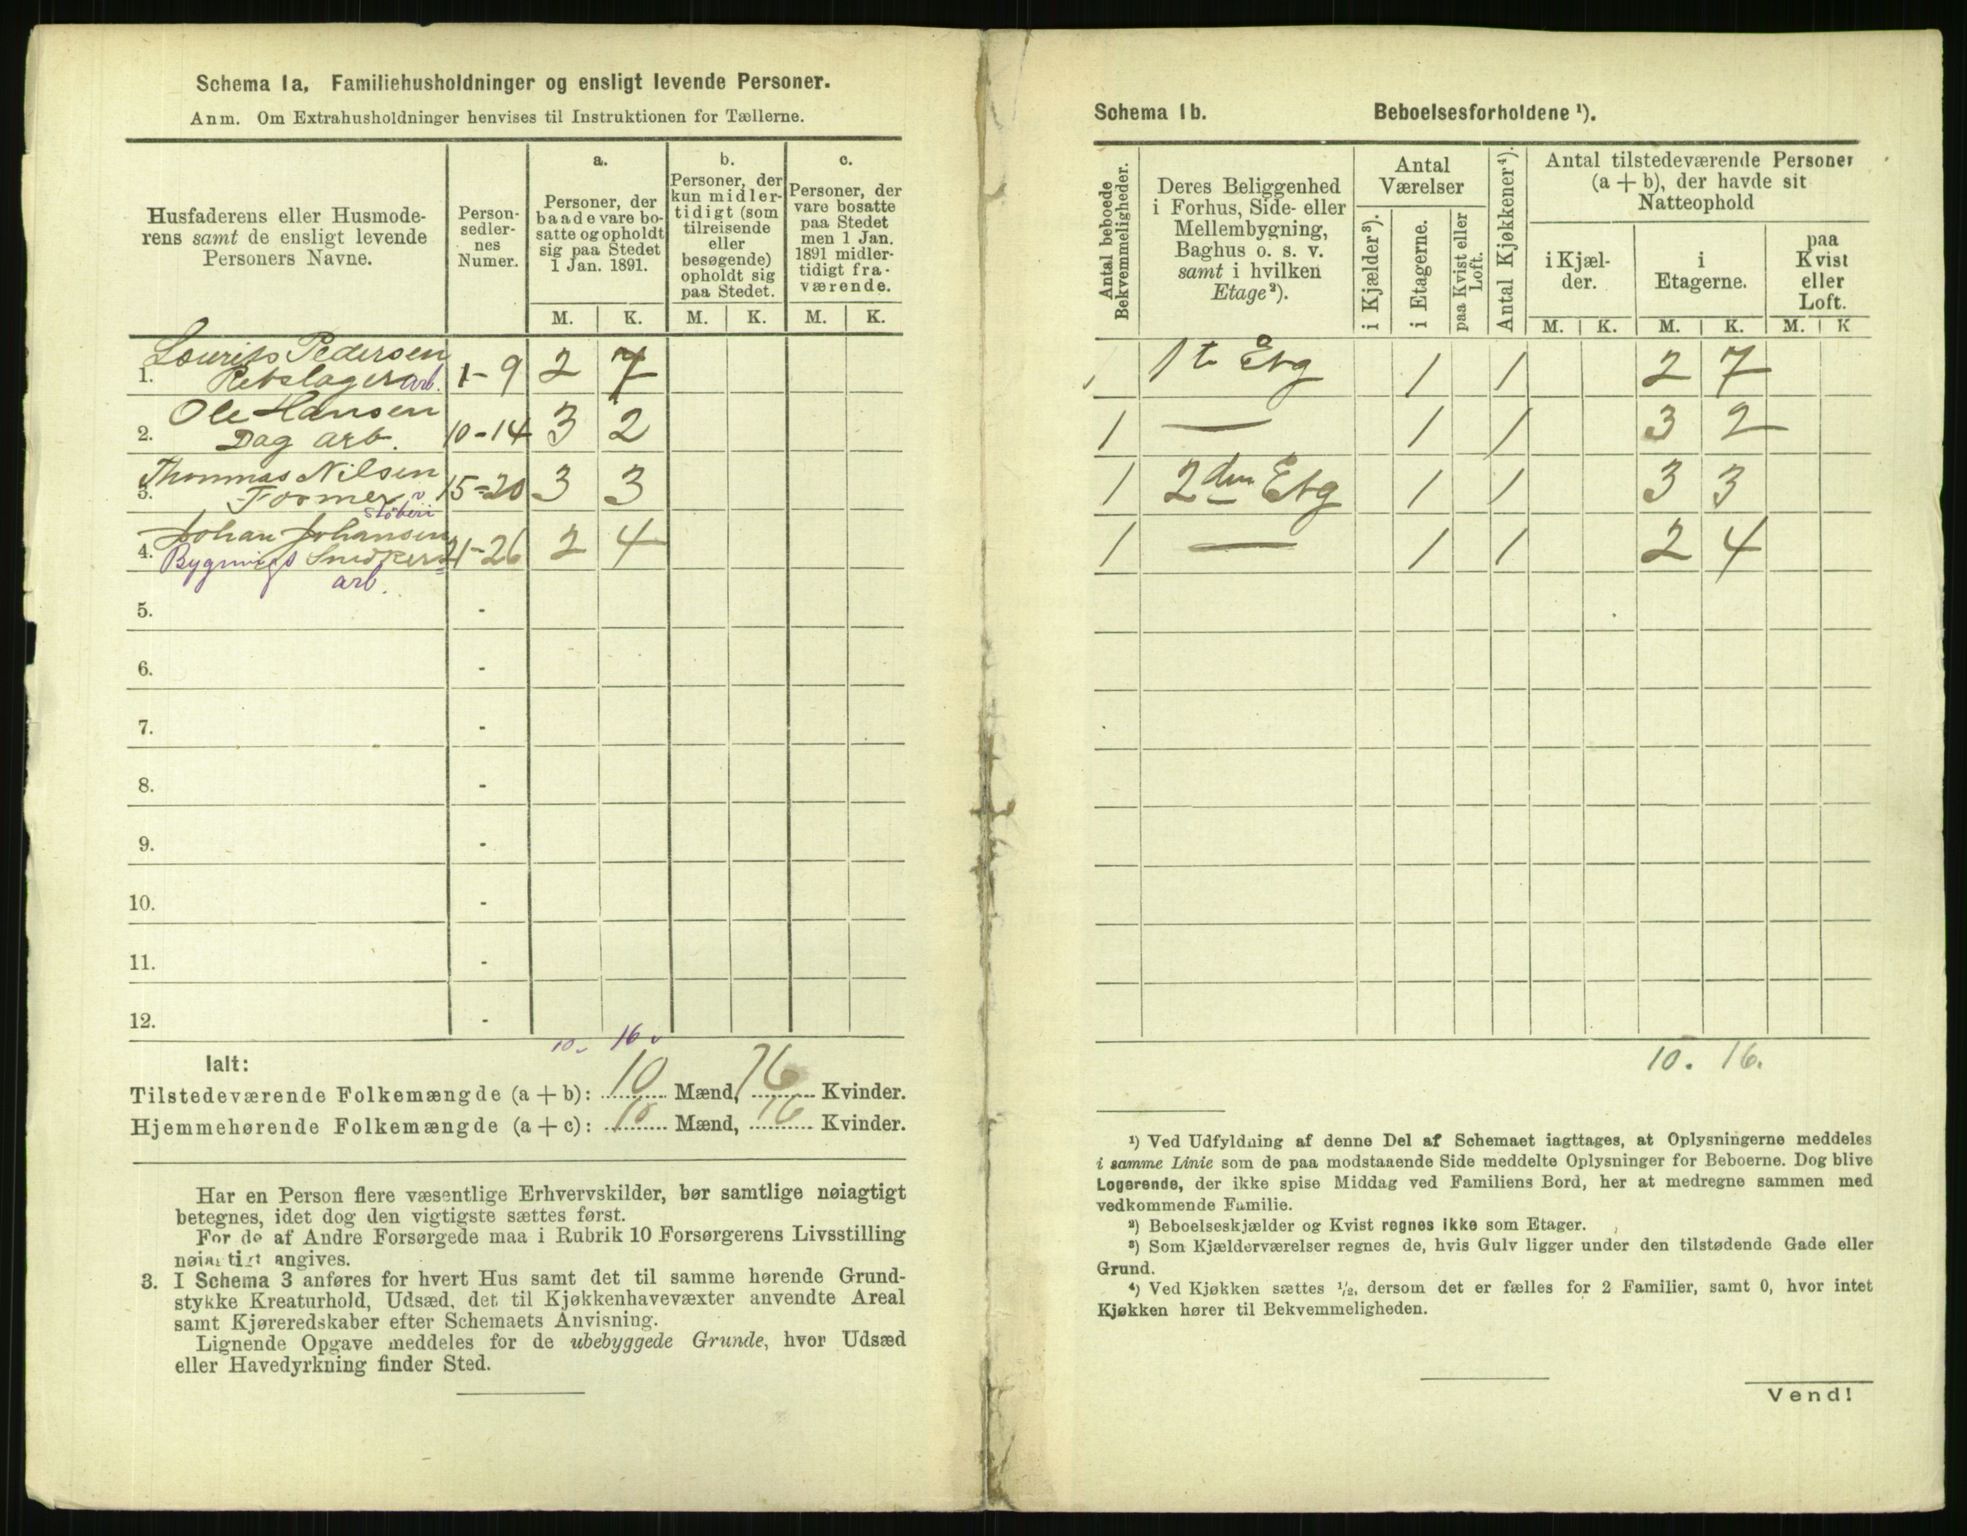 Schema 1a, Familiehusholdninger og ensligt levende Personer.
Anm. Om Extrahusholdninger henvises til Instruktionen for Tællerne.
Husfaderens eller Husmode-
rens samt de ensligt levende
Personers Navne.
Person-
sedler-
nes
Numer.
a.
Personer, der
baade vare bo-
satte og opholdt
sig paa Stedet
1 Jan. 1891.
b.
Personer, der
kun midler-
tidigt (som
tilreisende
eller
besøgende)
opholdt sig
paa Stedet.
c.
Personer, der
vare bosatte
paa Stedet
men 1 Jan.
1891 midler-
tidigt fra-
værende.
M. K. M. K. M. K.
Lourits Pedersen
1. Rebslager arb. 1-9 2 7
Ole Hansen
2. Dag arb. 10-14 3 2
Thommas Nilsen
3. Former v 15-20 3 3
støberi
Johan Johansen
4. Bygnings Snedker 21-26 2 4
arb.
5. -
6. -
7. -
8. -
9. -
10. -
11. -
12. -
10 16
Ialt:
Tilstedeværende Folkemængde (a + b): 10 Mænd, 16 Kvinder.
Hjemmehørende Folkemængde (a + c): 10 Mænd, 16 Kvinder.
Har en Person flere væsentlige Erhvervskilder, bør samtlige nøiagtigt
betegnes, idet dog den vigtigste sættes først.
For de af Andre Forsørgede maa i Rubrik 10 Forsørgerens Livsstilling
nøiagtigt angives.
3. I Schema 3 anføres for hvert Hus samt det til samme hørende Grund-
stykke Kreaturhold, Udsæd, det til Kjøkkenhavevæxter anvendte Areal
samt Kjøreredskaber efter Schemaets Anvisning.
Lignende Opgave meddeles for de ubebyggede Grunde, hvor Udsæd
eller Havedyrkning finder Sted.
Schema 1b. Beboelsesforholdene ¹).
Antal beboede
Bekvemmeligheder.
Deres Beliggenhed
i Forhus, Side- eller
Mellembygning,
Baghus o. s. v.
samt i hvilken
Etage²).
Antal
Værelser
i Kjælder³).
i Etagerne.
paa Kvist eller
Loft.
Antal Kjøkkener⁴).
Antal tilstedeværende Personer
(a + b), der havde sit
Natteophold
i Kjæl-
der.
i
Etagerne.
paa
Kvist
eller
Loft.
M. K. M. K. M. K
1 1te Etg 1 1 2 7
1 — 1 1 3 2
1 2den Etg 1 1 3 3
1 — 1 1 2 4
10. 16.
¹) Ved Udfyldning af denne Del af Schemaet iagttages, at Oplysningerne meddeles
i samme Linie som de paa modstaaende Side meddelte Oplysninger for Beboerne. Dog blive
Logerende, der ikke spise Middag ved Familiens Bord, her at medregne sammen med
vedkommende Familie.
²) Beboelseskjælder og Kvist regnes ikke som Etager.
³) Som Kjælderværelser regnes de, hvis Gulv ligger under den tilstødende Gade eller
Grund.
⁴) Ved Kjøkken sættes ½, dersom det er fælles for 2 Familier, samt 0, hvor intet
Kjøkken hører til Bekvemmeligheden.
Vend!